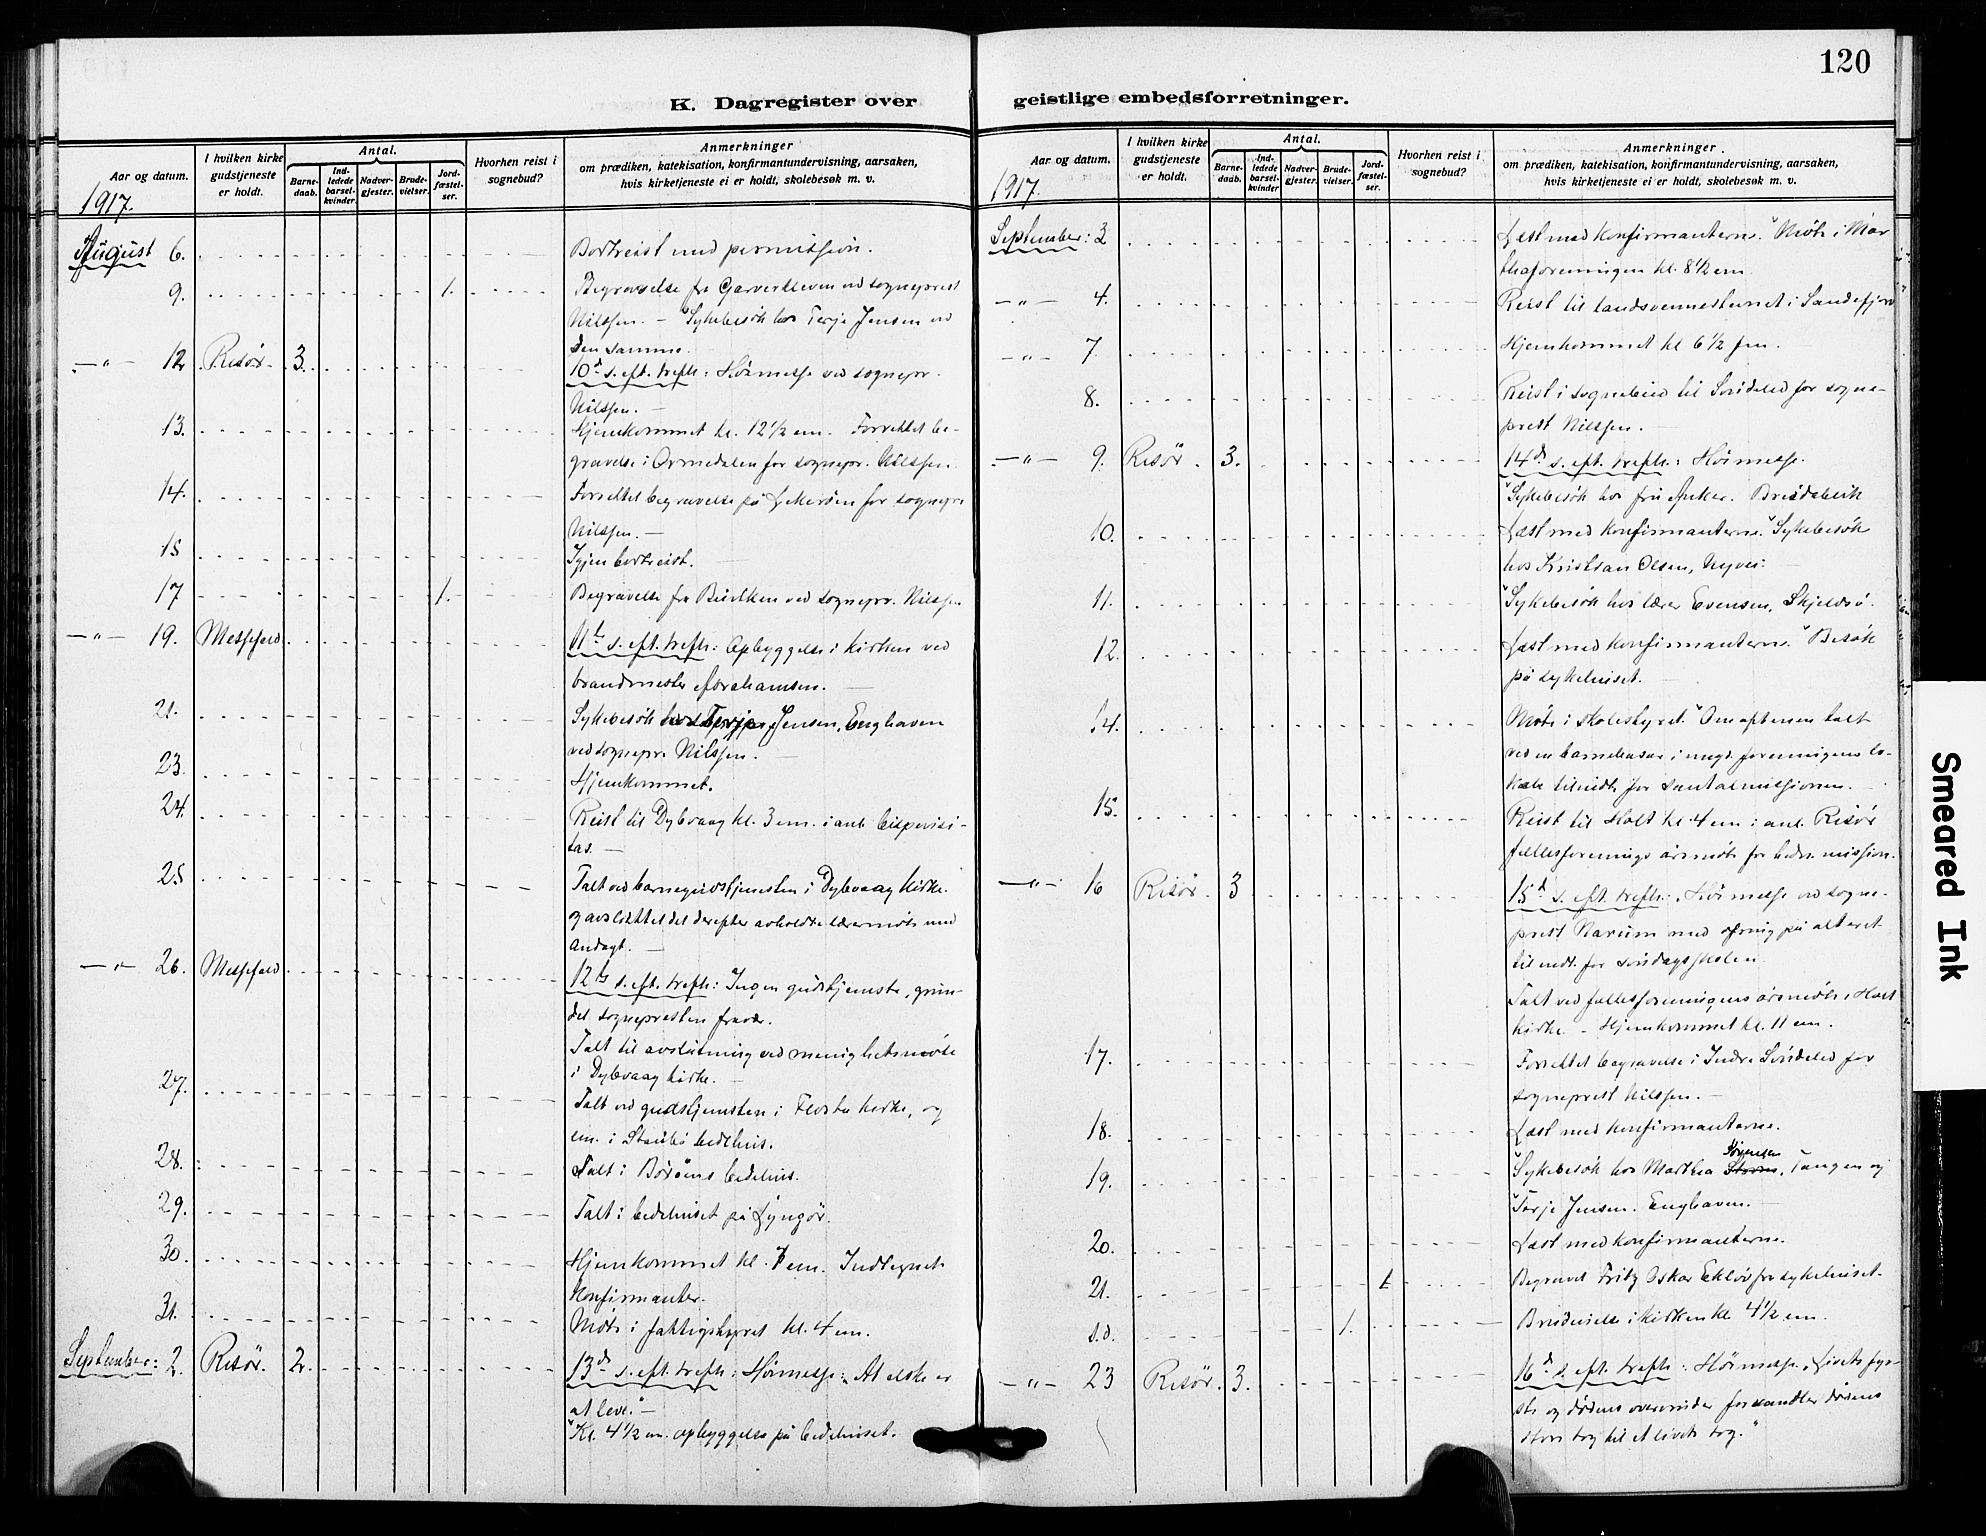 120
K. Dagregister over geistlige embedsforretninger.
Aar og datum.
I hvilken kirke gudstjeneste er holdt.
Antal.
Barne-daab.
Ind-ledede barsel-kvinder.
Nadver-gjester.
Brude-vielser.
Jord-fæstel-ser.
Hvorhen reist i sognebud?
Anmerkninger
om prædiken, katekisation, konfirmantundervisning, aarsaken,
hvis kirketjeneste ei er holdt, skolebesøk m. v.
1917.
August 6. Bortreist med permission.
9. 1. Begravelse fra Garverkleven ved sogneprest
Nilssen. — Sykebesøk hos Terje Jensen ved
den samme.
—"— 12. Risör. 3. 10d s. eft. trefh: Höimesse ved sognepr.
Nilssen. —
13. Hjemkommet kl. 12 1/2 em. Forrettet be-
gravelse i Ormedalen for sognepr. Nilssen.
14. Forrettet begravelse på for sognepr.
Nilssen. —
15 Igjen bortreist.
17 1. Begravelse fra ved sognepr. Nilssen.
—"— 19. Messefald. 11te s. eft. trefh: Opbyggelse i kirken ved
brandmester Abrahamsen. —
21. Sykebesök hos Terje Jensen, Enghaven
ved sognepr. Nilssen. —
23. Hjemkommet.
24. Reist til Dybvaag kl. 3 em. i anl. bispevisi-
tas. —
25 Talt ved barnegudstjenesten i Dybvaag kirke.
og avsluttet det derefter avholdte lærermöte med
andagt. —
—"— 26. Messefald 12te s. eft. trefh: Ingen gudstjeneste, grun-
det sogneprestens fravær.
Talt til avslutning ved menighetsmöte
i Dybvaag kirke. —
27. Talt ved gudstjenesten i Flosta kirke, og
em. i Staubö bedehus.
28. Talt i Boröens bedehus.
29. Talt i bedehuset på Lyngör.
30. Hjemkommet kl. 7 em. Indtegnet
konfirmanter.
31. Möte i fattigstyret kl. 4 em.
September: 2. Risör. 2. 13d s. eft. trefh: Höimesse: „At elske er
at leve." —
Kl. 4 1/2 em. opbyggelse på bedehuset.
Aar og datum.
I hvilken kirke gudstjeneste er holdt.
Antal.
Barne-daab.
Ind-ledede barsel-kvinder
Nadver-gjester.
Brude-vielser.
Jord-fæstel-ser.
Hvorhen reist i sognebud?
Anmerkninger.
om prædiken, katekisation, konfirmantundervisning, aarsaken,
hvis kirketjeneste ei er holdt, skolebesøk m. v.
1917.
September: 3 Læst med konfirmanterne. Möte i Mar
thaforeningen kl. 8 1/2 em.
—"— 4. Reist til landsvennestevnet i Sandefjord
—"— 7. Hjemkommet kl 6 1/2 fm.
8. Reist i sognebud til Söndeled for sogne-
prest Nilssen. —
—"— 9. Risör. 3. 14d s. eft. trefh: Höimesse.
Sykebesök hos fru Anker.
10. Læst med konfirmanterne. Sykebesök
hos Kristian Olsen,
11. Sykebesök hos lærer Evensen, Skjeldsö.
12. Læst med konfirmanterne. Besök
på sykehuset. —
14. Möte i skolestyret. Om aftenen talt
ved en barnebasar i ungd. foreningens lo-
kale til indt. for santalmissionen. —
15. Reist til Holt kl. 4 em i anl. Risör
fællesforenings årsmöte for hedn. mission.
—"— 16 Risör. 3 15d s. eft. trefh: Höimesse ved sogne-
prest Narum med ofring på alteret
til indt. for söndagsskolen
Talt ved fællesforeningens årsmöte i Holt
kirke. — Hjemkommet kl. 11 em.
17. Forrettet begravelse i Indre Söndeled for
sogneprest Nilssen. —
18. Læst med konfirmanterne.
Sörensen
19. Sykebesök hos Martha Storm, Tangen og
Terje Jensen. Enghaven. —
20. Læst med konfirmanterne.
21. 1. Begravet Fritz Oskar Eklöv fra sykehuset.
s.d. 1. Brudevielse i kirken kl 4 1/2 em.
—"— 23 Risör. 3. 16d s. eft. trefh: Höimesse. „Livets fyr-
ste og dödens overvinder forvandler dödens
tog til et livets tog."
Smeared Ink